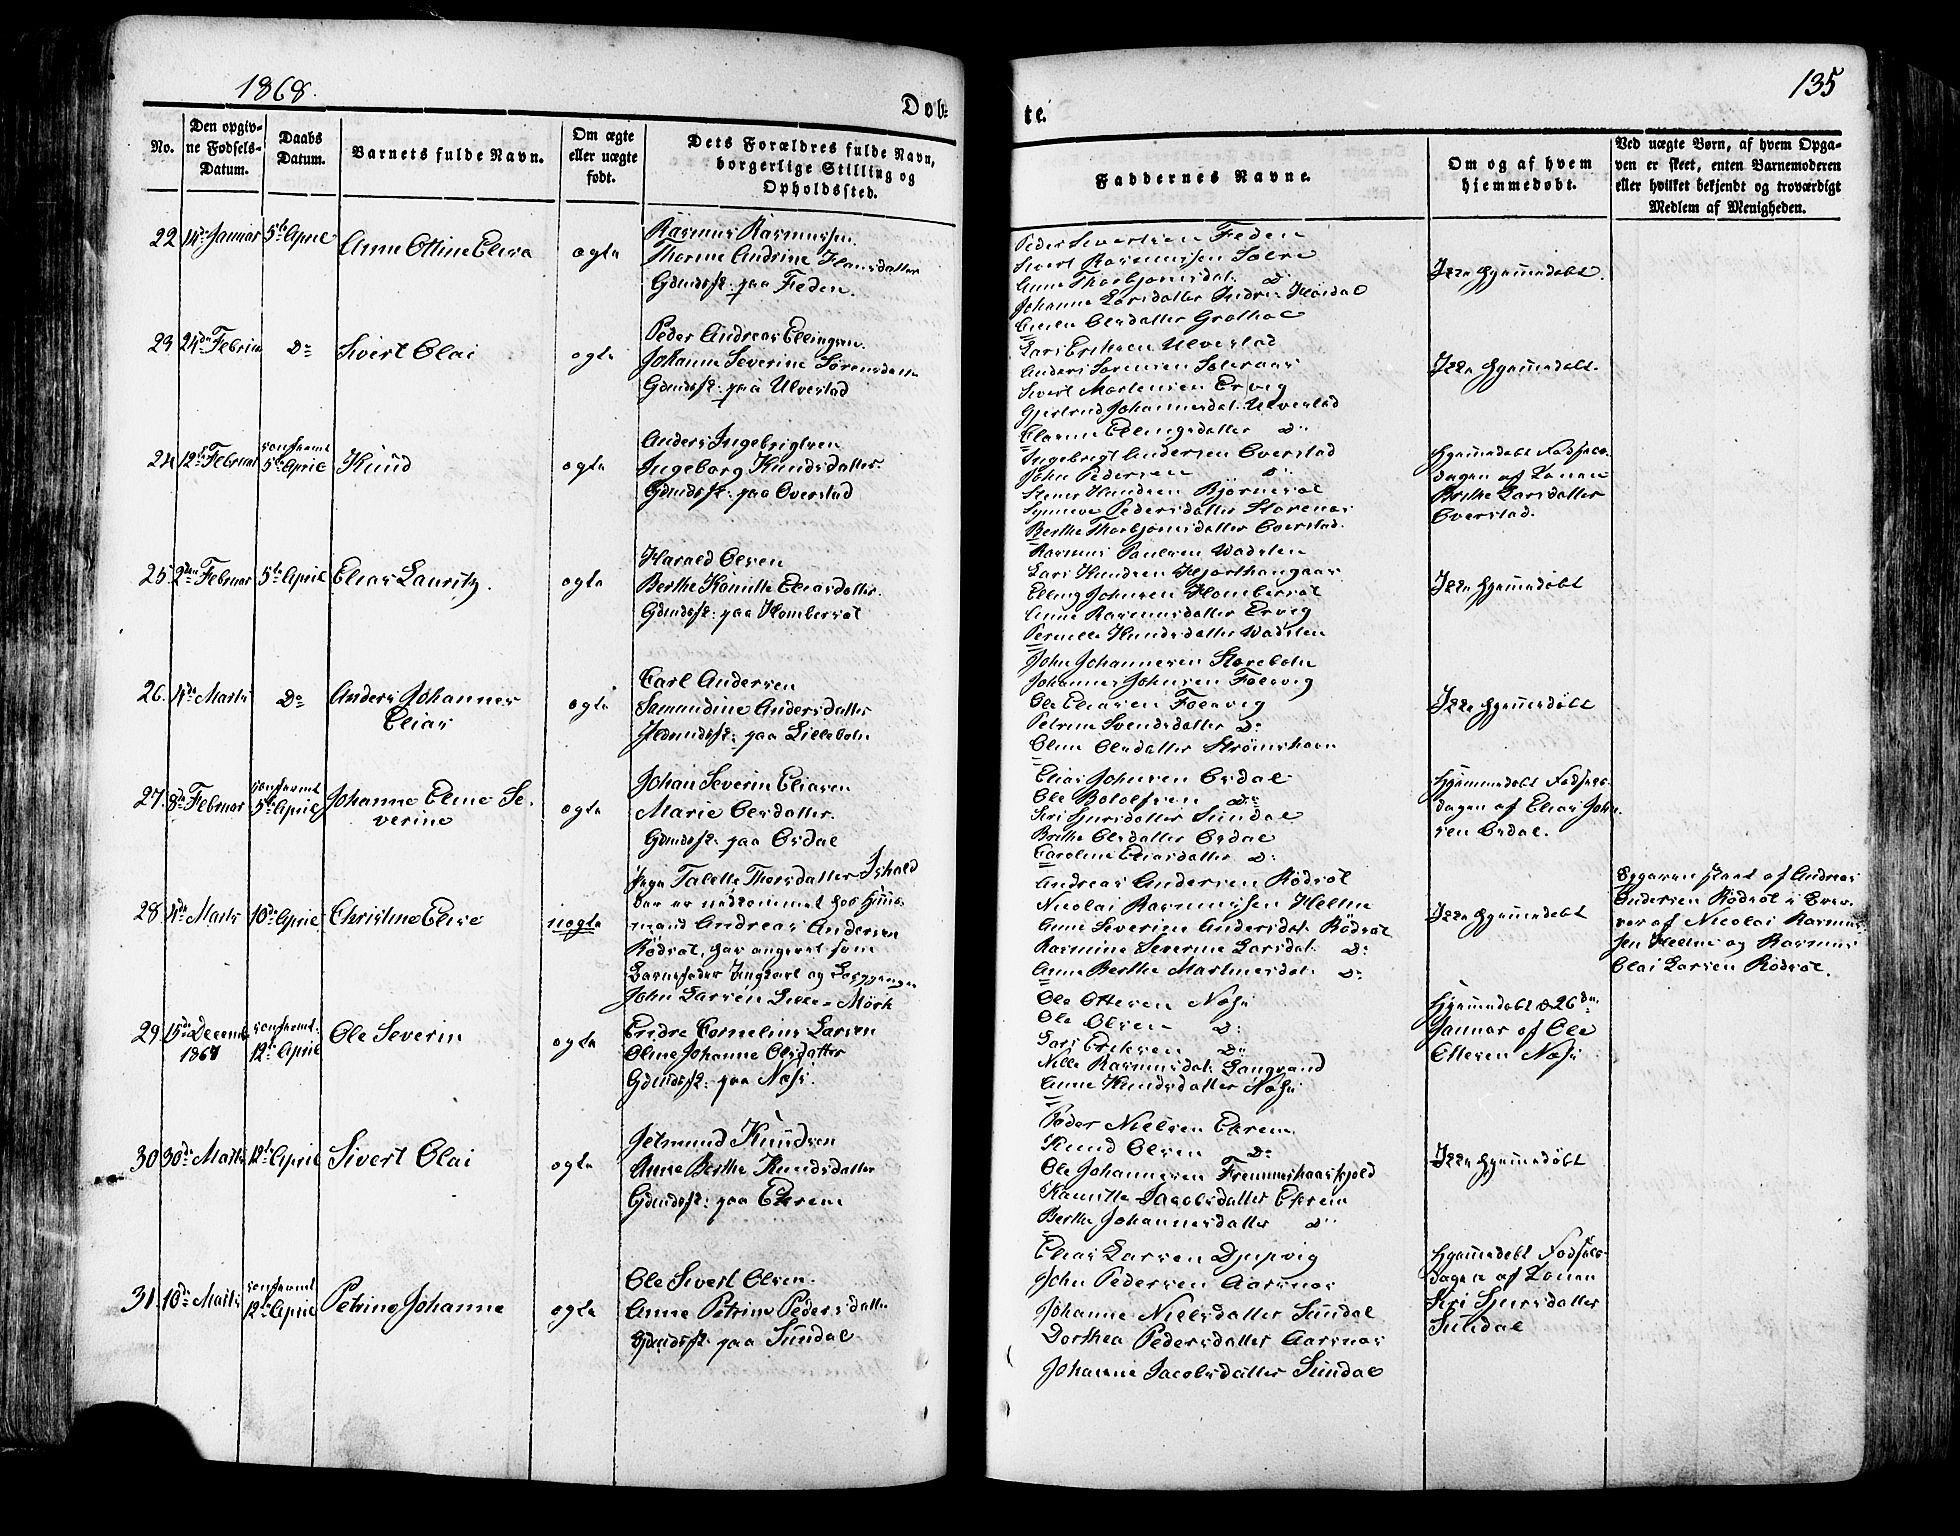 1868.
Døb-
te.
135
No.
Den opgiv-
ne Fødsels-
Datum.
Daabs
Datum.
Barnets fulde Navn.
Om ægte
eller uægte
født.
Dets Forældres fulde Navn,
borgerlige Stilling og
Opholdssted.
Faddernes Navne.
Om og af hvem
hjemmedøbt.
Ved uægte Børn, af hvem Opga-
ven er skeet, enten Barnemoderen
eller hvilket bekjendt og troværdigt
Medlem af Menigheden.
22 14de Januar 5te April Anne Ottine Elisa ægte
Rasmus Rasmussen
Thorine Andrine Hansdatter
Gdmdsf: paa Feden.
Peder Sivertsen Feden
Sivert Rasmussen
Anne Thorbjørnsdat: Do
Johanne Larsdatter Indre
Olsdatter
Ikke hjemmedøbt.
23 24de Februar Do Sivert Olai ægte
Peder Andreas Ellingsen
Johanne Severine Sørensdatter
Gdmdsf: paa Ulvestad
Lars Eriksen Ulvestad
Anders Sørensen
Sivert Mortensen Ervig
Gjertrud Johannesdat: Ulvestad
Ellingsdatter Do
Ikke hjemmedøbt.
24 12te Februar confirmt 5te April Knud ægte
Anders Ingebrigtsen
Ingeborg Knudsdatter
Gdmdsf: paa Overstad
Ingebrigt Andersen Overstad
John Pedersen Do
Knudsen
Synneve Pedersdatter
Berthe Thorbjørnsdatter Overstad.
Hjemmedøbt Fødsels-
dagen af Konen
Brithe Larsdatter
Overstad.
25 2den Februar 5te April Elias Lauritz. ægte
Harald Olsen
Berthe Kanutte Eliasdatter
Gdmdsf: paa
Rasmus Paulsen
Lars Knudsen
Elling Johnsen
Anne Rasmusdatter Ervig
Pernille Knudsdatter
Ikke hjemmedøbt
26. 4de Marts Do Anders Johannes
Elias
ægte
Carl Andersen
Samundine Andersdatter
paa Lillebøen
John Johannesen Storebøen
Johannes Johnsen
Ole Eliasen
Petrine Svendsdatter Do
Oline Olsdatter Strømshavn
Ikke hjemmedøbt
27. 8de Februar confirmt 5te April Johanne Eline Se-
verine
ægte
Johan Severin Eliasen
Marie Olsdatter
Gdmdsf: paa Osdal
Elias Johnsen Osdal
Ole Do
Siri Sjursdatter Sundal
Brithe Olsdatter Osdal
Caroline Eliasdatter Do
Hjemmedøbt Fødsels-
dagen af Elias John-
sen Osdal.
28 4de Marts 10de April Christine Elise uægte
Pige Talette Thorsdatter
der er nedkommet hos Huus-
mand Andreas Andersen
Rødsæt, har angivet som
Barnefader Ungkarl og
John Larsen Mørk
Andreas Andersen Rødsæt
Nicolai Rasmussen
Anne Severine Andersdat: Rødsæt
Rasmine Severine Larsdat: Do
Anne Berthe Martinusdat: Do
Ikke hjemmedøbt
Opgaven skeet af Andreas
Andersen Rødsæt i Over-
vær af Nicolai Rasmus-
sen og Rasmus
Olai Larsen Rødsæt.
29 15de Decemb. 1867 confirmt. 12te April Ole Severin ægte
Endre Cornelius Larsen
Oline Johanne Olsdatter
Gdmdsf: paa Næss.
Ole Ottesen Næss
Ole Olsen Do
Lars Eriksen Do
Nille Rasmusdat:
Anne Knudsdatter Næss
Hjemmedøbt d 26de
Januar af Ole
Ottesen Næss
30 30de Marts 12te April Sivert Olai ægte
Jetmund Knudsen
Anne Berthe Knudsdatter
Gdmdsf: paa Ekrem
Peder Nielsen Ekrem
Knud Olsen Do
Ole Johannesen
Kanutte Jacobsdatter Ekrem
Berthe Johannesdatter Do
Ikke hjemmedøbt
31. 10de Marts confirmt 12te April Petrine Johanne ægte
Ole Sivert Olsen
Anne Petrine Pedersdatter
Gdmdsf: paa Sundal
Elias Larsen Djupvig
John Pedersen Aarsnes
Johanne Nielsdatter Sundal
Dorthea Pedersdatter Aarsnes
Johanne Jacobsdatter Sundal
Hjemmedøbt Fødsels-
dagen af Konen
Siri Sjursdatter
Sundal